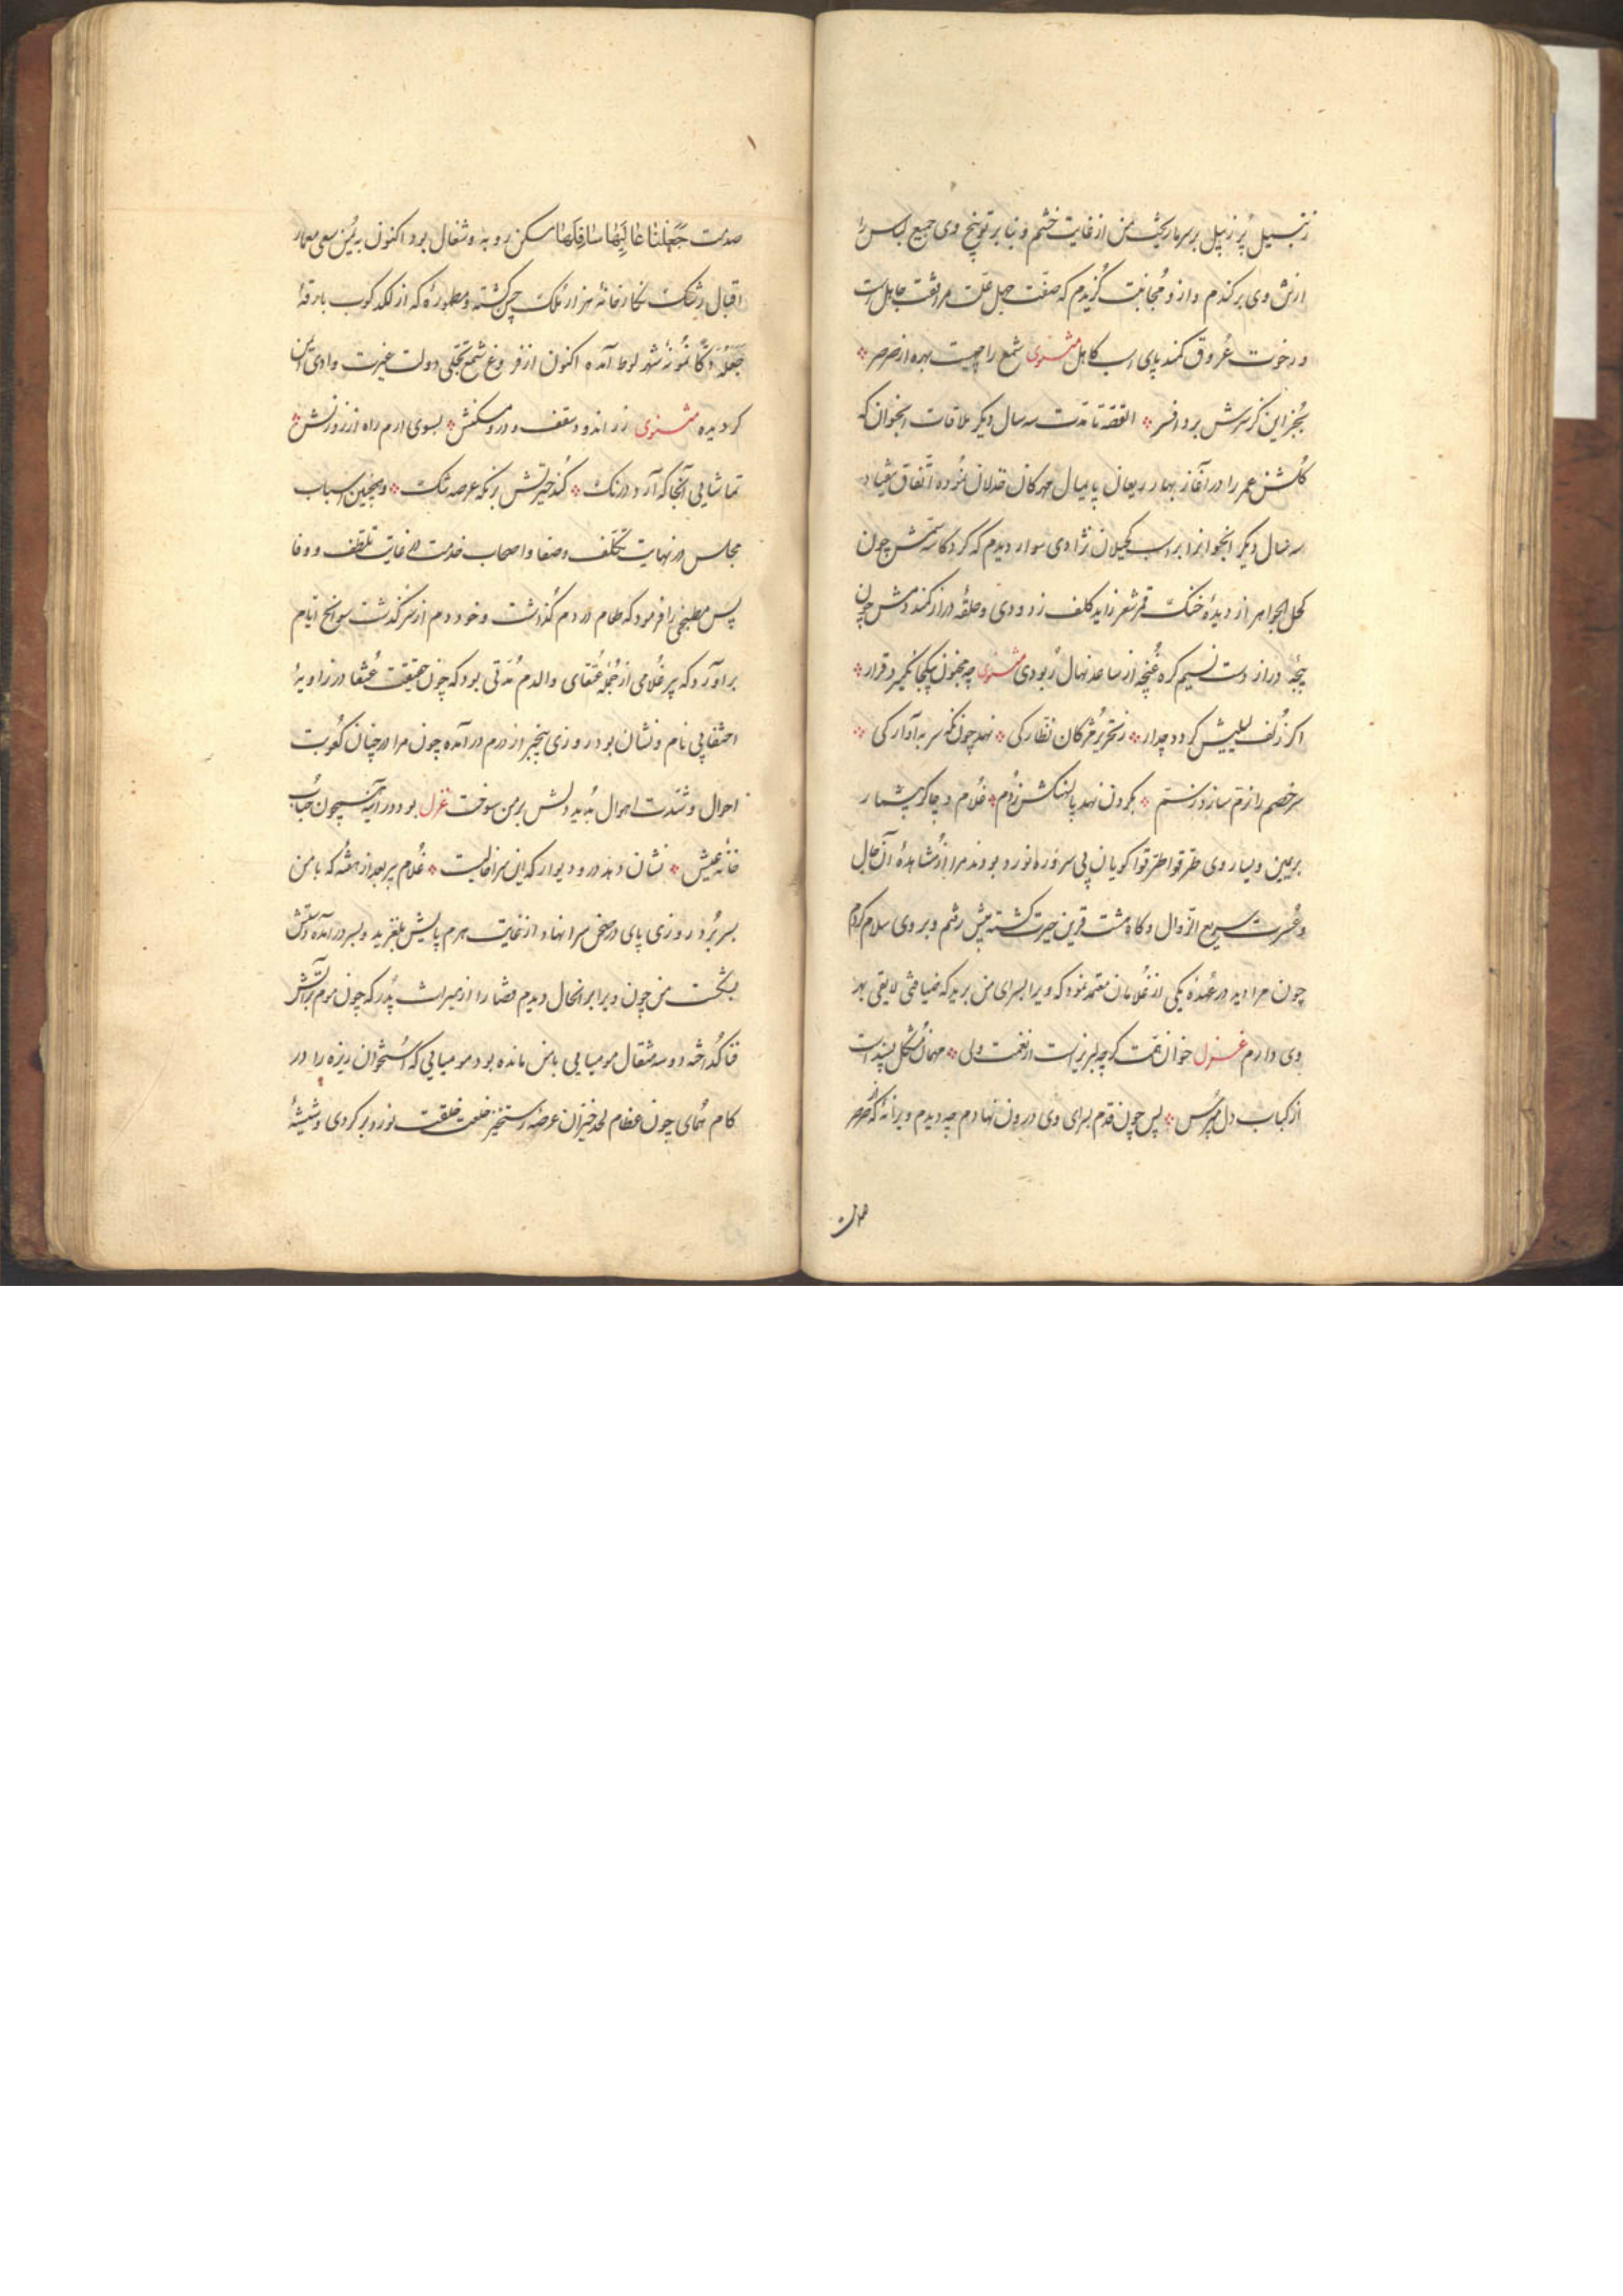 زنبیل پر زنبیل بر سر ما ریخت من از غایت خشم و بنا بر توبیخ وی جمیع لباس را
از تن وی برکندم و از و مجانبت گزیدم که صفت جهل علت مرافقت جاهل است
و رخوت عروق کمند پای اسب کاهل مثنوی شمع را چیست بهره از صرصر
بجز این کز سرش برد افسر القصه تا مدت سه سال دیگر ملاقات انجوان که
کلشن عمر را در آغاز بهار ریعان پایمال مهرکان خذلان نموده اتفاق نیفتاد
سه سال دیگر انجوانرا بر اسب کحیلان نژادی سوار دیدم که کرد کاسه سمش چون
کحل الجواهر از دیده خنک قمر زاید کلف زدودی و حلقه دراز کمند دمش چون
پنجه دراز دست نسیم کره غنچه از ساعد نهال ربودی مثنوی چه مجنون بیکجا نگیرد قرار
اکر زلف لیلیش کردد چدار ز تحریر مژکان نظارکی نهد چون نکه سر به آوارکی
سر خصم را زم سازد ز سم بکردن نهد پالهنکش ز دم غلام و چاکر بیشمار
بر یمین و یسار وی طرقوا طرقوا کویان پی سر وره نورد بودند مرا از مشاهده آن حال
و عسرت سریع الزوال و کاه مشت قرین حیرت کشته پیش رفتم و بر وی سلام کردم
چون مرا دید در عهده یکی از غلامان معتمد نمود که ویرا بسرای من برید که ضیافتی لایق بهر
وی دارم غزل خوان نعمت کرچه لبریز است از نعمت ولی مهمان مشکل پسند است
از کباب دل مپرس پس چون قدم بسرای وی درون نهادم چه دیدم ویرانه که از صرصر
صدمت جعلنا عالیها سافلها مسکن روبه و شغال بود اکنون به یمن سعی معمار
اقبال رشک نکارخانه هزار ملک چین کشته و مطموره که از لکد کوب بارقه
جعله دکا نمونه شهر لوط آمده اکنون از فروغ شمع تجلی دولت غیرت وادی ایمن
کردیده مثنوی زر اندود سقف و در و مسکنش بسوی ارم راه از روزنش
تماشایی آنجا که آرد درنک کند حیرتش ز نکه عرصه تنک و همچنین اسباب
مجلس در نهایت تکلف و صفا و اصحاب خدمت در غایت تلطف و وفا
پس مطبخی را فرمود که طعام در دم کذاشت و خود دم از سرکذشت سوانح ایام
برآورد که پیر غلامی از جمله عتقای والدم مدتی بود که چون حقیقت عنقا در زاویه
اختفا بی نام و نشان بود روزی بیخبر از درم در آمده چون مرا در چنان صعوبت
احوال و شدت اهوال بدید دلش بر من سوخت غزل بود در آینه همچون حباب
خانه عیش نشان دهد در و دیوار که این سرا خالیست غلام پیر بعد از هفته که با من
بسر برد روزی پای در صحن سرا نهاد از غایت هرم پایش بلغزید و بسر در آمده ساقش
بشکست من چون ویرا بر انحال دیدم قضا را از میراث پدر که چون موم بر آتش
فنا کداخته دو سه مثقال مومیایی با من مانده بود مومیایی که استخوان ریزه را در
کام همای چون عظام لحد خیزان عرصه رستخیز خلعت خلقت نو در بر کردی و شیشه